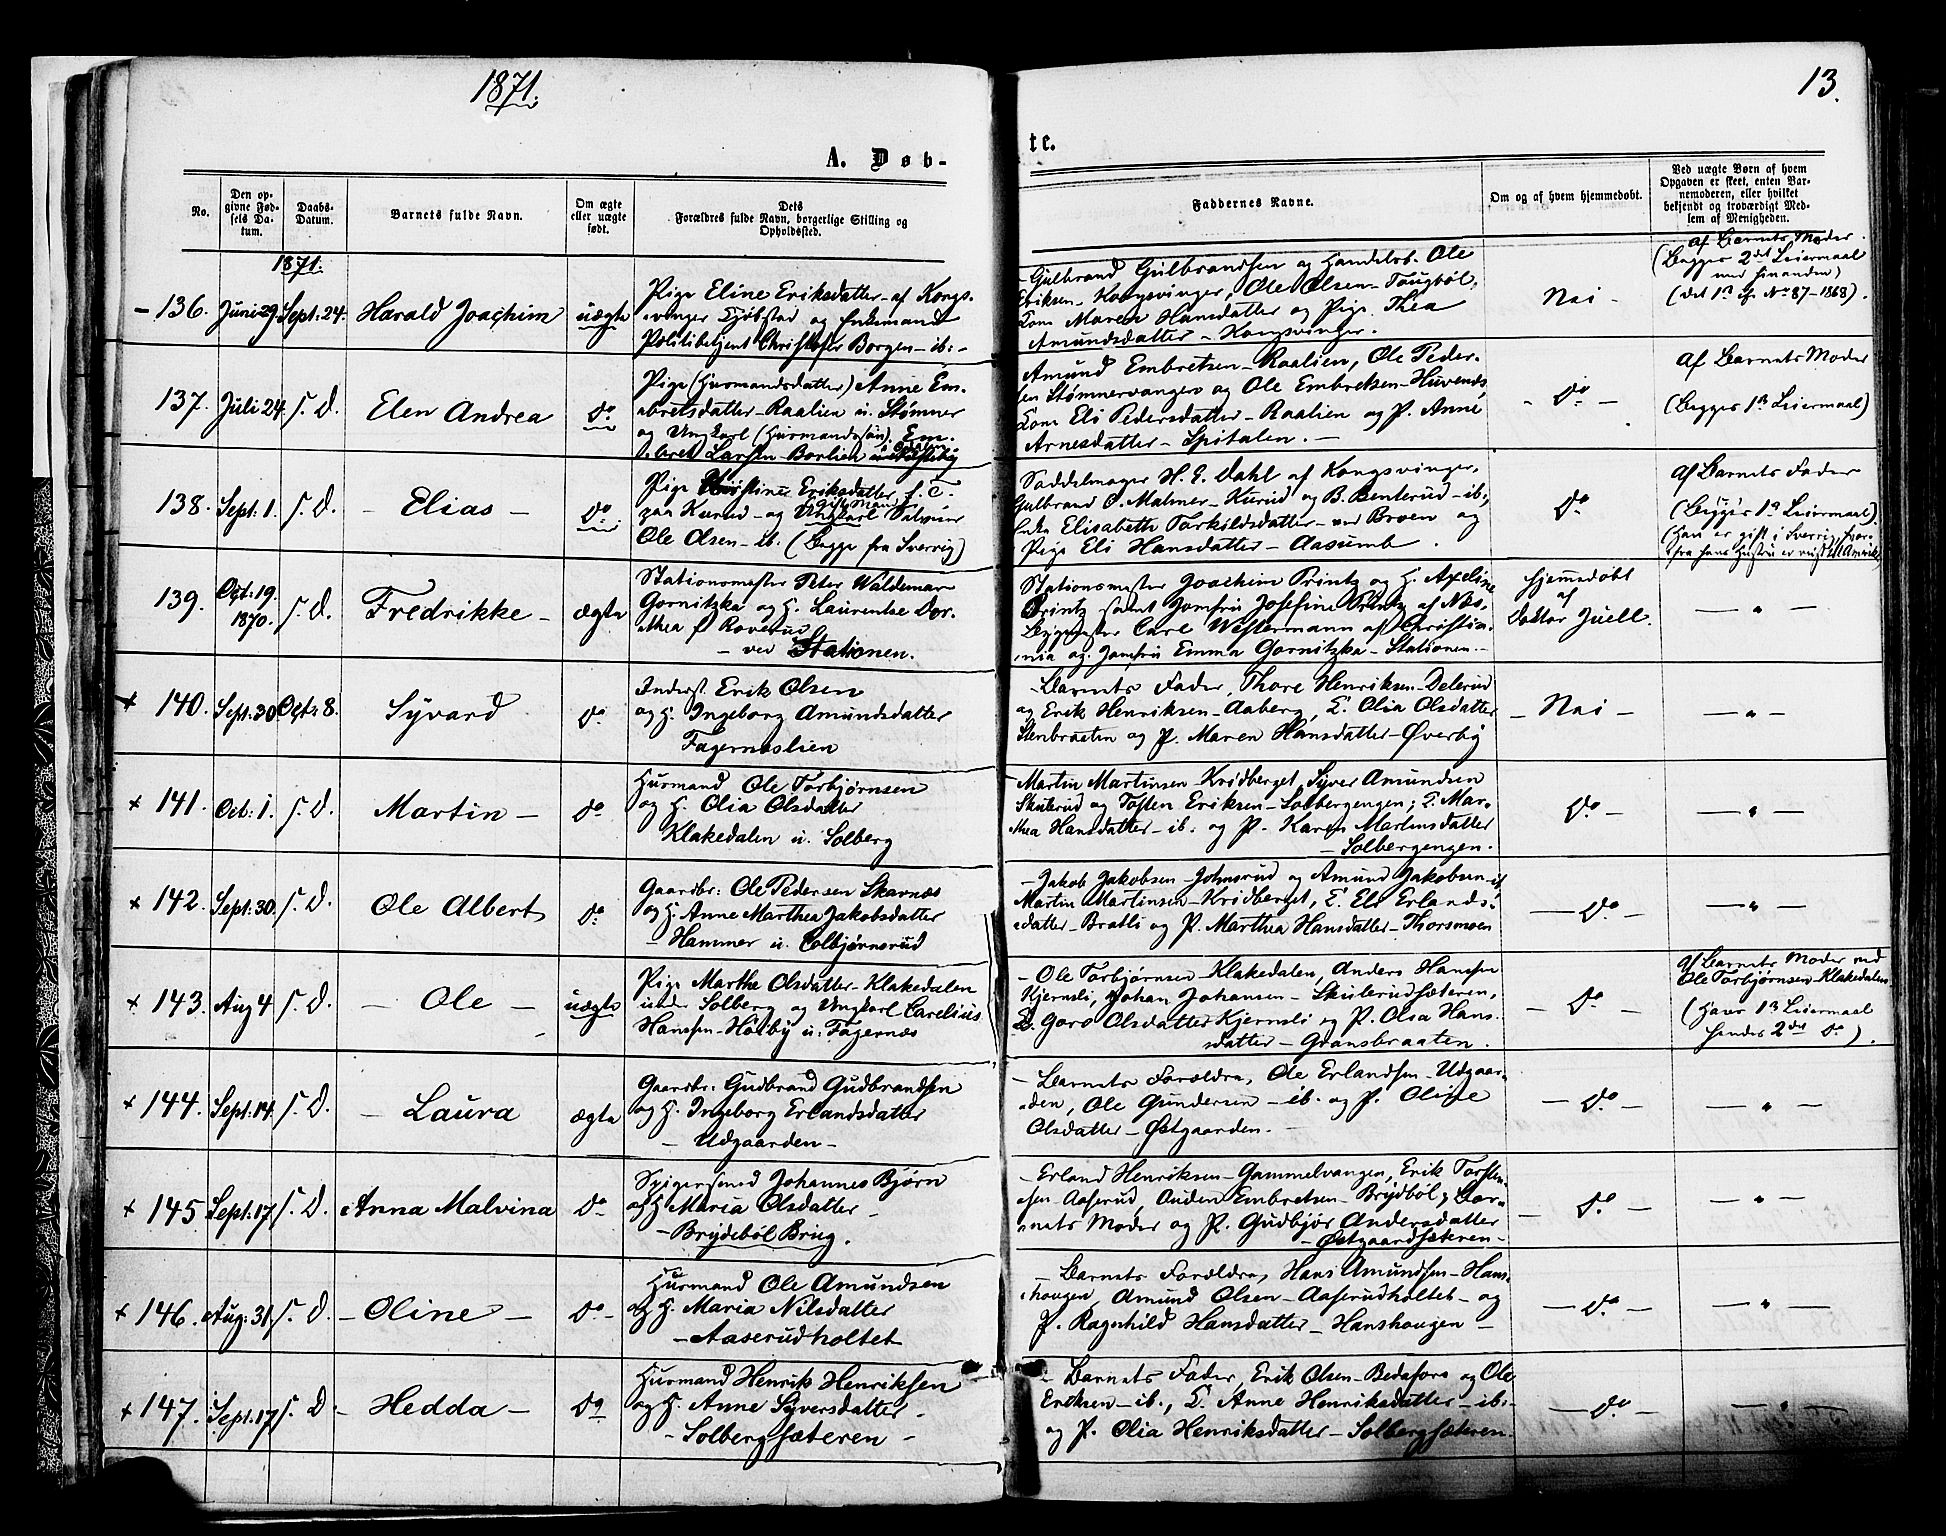 1871.
13.
A. Døb-
te.
No.
Den op-
givne Fød-
sels Da-
tum.
Daabs-
Datum.
Barnets fulde Navn.
Om ægte
eller uægte
født.
Dets
Forældres fulde Navn, borgerlige Stilling og
Opholdssted.
Faddernes Navne.
Om og af hvem hjemmedøbt.
Ved uægte Børn af hvem
Opgaven er skeet, enten Bar-
nemoderen, eller hvilket
bekjendt og troværdigt Med-
lem af Menigheden.
1871.
– 136. Juni 29. Sept: 24. Harald Joachim uægte
Pige Eline Eriksdatter – af Kongs-
vinger Kjøbstad og Enkemand
Politibetjent Christoffer Borgen – ib: –
– Gulbrand Gulbrandsen og Handelsb. Ole
Eriksen – Kongsvinger, Ole Olsen – Taugbøl,
Kone Maren Hansdatter og Pige Thea
Amundsdatter – Kongsvinger.
Nei –
af Barnets Moder.
(Begges 2det Leiermaal
med hinanden)
(det 1ste cfr. No 87 – 1868).
137. Juli 24. s. D. Elen Andrea do
Pige (Husmandsdatter) Anne Em-
bretsdatter – Raalien u. Stømner
og Ungkarl (Husmandssøn) Em-
bret Larsen – Borlien
Amund Embretsen – Raalien, Ole Peder-
sen Stømnervangen og Ole Embretsen – Huvenæs,
Kone Eli Pedersdatter – Raalien og P. Anne
Arnesdatter – Spitalen. –
– do –
af Barnets Moder
(Begges 1ste Leiermaal)
138. Sept: 1. s. D. – Elias – do
Pige Kristine Eriksdatter f. T.
paa Kurud – og Ungkarl
Ole Olsen – ib. (Begge fra Sverrig)
Saddelmager H. E. Dahl af Kongsvinger,
Gulbrand O. Malmer – Kurud og B. Benterud – ib:,
Enke Elisabeth Torkildsdatter – ved Broen og
Pige Eli Hansdatter – Aasumb.
do
af Barnets Fader
(Begges 1ste Leiermaal).
(Han er gift i Sverrig,
fra hans Hustru er reist til Amerika)
139. Oct: 19. 1870. s. D. Fredrikke – ægte
Stationsmester Peter Waldemar
Gornitzka og H. Laurentse Dor-
thea f. Roverud
– ved Stationen.
Stationsmester Joachim Printz og H. Axeline
Printz samt Jomfru Josefine Printz af Næs,
Bygmester Carl Westermann af Christia-
nia og Jomfru Emma Gornitzka – Stationen. –
hjemmedøbt
af
Doktor Juell.
— „ —
x 140. Sept: 30. Oct: 8. Syvard do
Inderst. Erik Olsen
og H. Ingeborg Amundsdatter
Fagernæslien
– Barnets Fader, Thore Henriksen – Delerud
og Erik Henriksen – Aaberg, K. Olia Olsdatter
Stenbraaten og P. Maren Hansdatter – Øverby
– Nei –
— „ —
x 141. Oct: 1. s. D. Martin – do
Husmand Ole Torbjørnsen
og H. Olia Olsdatter
Klakedalen u. Solberg
Martin Martinsen – Kridberget, Syver Amundsen
Skulerud og Tosten Eriksen – Solbergengen; K. Mar-
thea Hansdatter – ib. og P. Karen Martinsdatter
– Solbergengen.
do –
— „ —
x 142. Sept: 30. s. D. Ole Albert do
Gaardbr: Ole Pedersen Skarnæs
og H. Anne Marthea Jakobsdatter
– Hammer u. Colbjørnsrud
– Jakob Jakobsen – Johnsrud og Amund Jakobsen – ib.
Martin Martinsen – Kridberget, K. Eli Erlands-
datter – Bratli og P. Marthea Hansdatter – Thorsmoen
— do —
— „ —
x 143. Aug 4 s. D. – Ole – uægte
Pige Marthe Olsdatter – Klakedalen
under Solberg og Ungkarl Carelius
Hansen – Holby u. Fagernæs
– Ole Torbjørnsen – Klakedalen, Anders Hansen
Kjernsli, Johan Johansen – Skulerudsæteren,
K. Goro Olsdatter Kjernsli og P. Olea Hans-
datter – Gransbraaten.
– do –
af Barnets Moder ved
Ole Torbjørnsen – Klakedalen.
(Hans 1ste Leiermaal
hendes 2det do).
x 144. Sept: 14. s. D. – Laura ægte
Gaardbr: Gudbrand Gudbrandsen
og H. Ingeborg Erlandsdatter
– Udgaarden –
– Barnets Forældre, Ole Erlandsen – Udgaar-
den, Ole Gundersen – ib. og P. Oline
Olsdatter – Østgaarden. –
— do —
— „ —
x 145. Sept: 17. s. D. Anna Malvina do
Spigersmed Johannes Bjørn
og H. Maria Olsdatter –
– Brydebøl Brug.
– Erland Henriksen – Gammelvangen, Erik Torsten-
sen – Aaserud, Ouden Embretsen – Brydbøl, Bar-
nets Moder og P. Gudbjør Andersdatter
– Østgaardsæteren –
– do –
— „ —
x 146. Aug: 31. s. D. – Oline – do –
Husmand Ole Amundsen
og H. Maria Nilsdatter
– Aaserudholtet
– Barnets Forældre, Hans Amundsen – Hans-
hougen, Amund Olsen – Aaserudholtet – og
P. Ragnhild Hansdatter – Hanshougen –
— do —
— „ —
x 147. Sept: 17. s. D. – Hedda – do
Husmand Henrik Henriksen
og H. Anne Syversdatter –
– Solbergsæteren –
– Barnets Fader, Erik Olsen – Bedafors og Ole
Eriksen – ib., K. Anne Henriksdatter – ib: –
og P. Olia Henriksdatter – Solbergsæteren.
— do —
— „ —